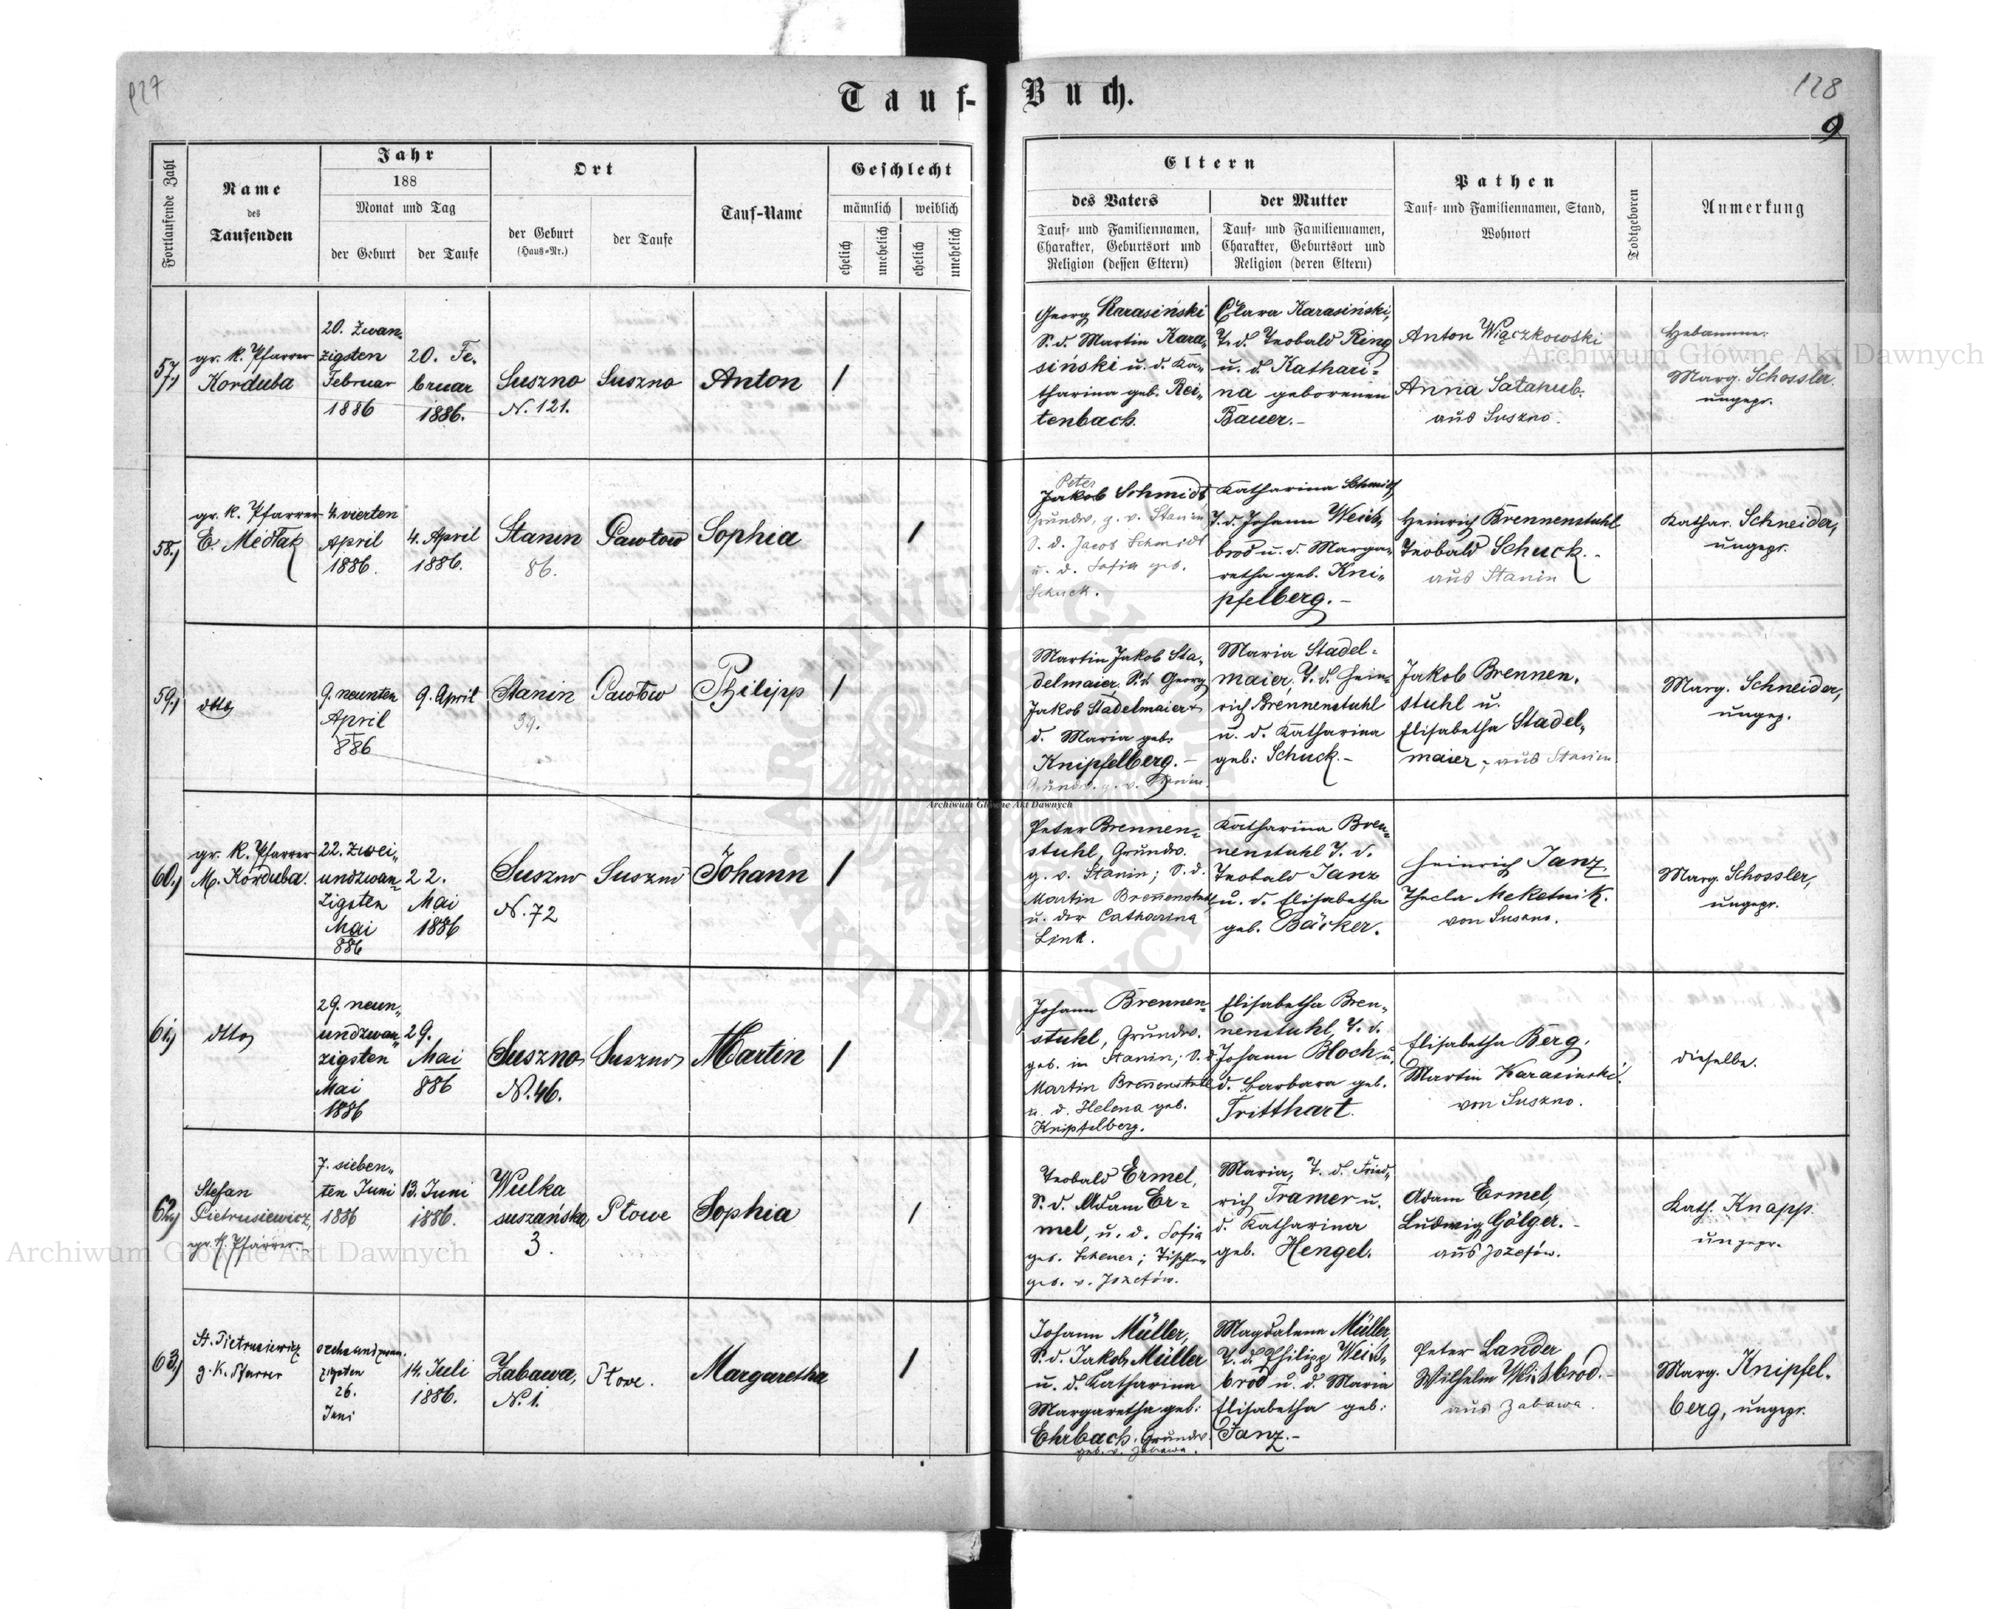 127
Tauf-Buch.
128
9
Fortlaufende Zahl
Name
des
Taufenden
Jahr
188
Monat und Tag
der Geburt
der Taufe
Ort
der Geburt
(Haus-Nr.)
der Taufe
Tauf-Name
Geschlecht
männlich
weiblich
ehelich
unehelich
ehelich
unehelich
Eltern
des Vaters
Tauf- und Familiennamen,
Charakter, Geburtsort und
Religion (dessen Eltern)
der Mutter
Tauf- und Familiennamen,
Charakter, Geburtsort und
Religion (deren Eltern)
Pathen
Tauf- und Familiennamen, Stand,
Wohnort
Todtgeboren
Anmerkung
57.)
gr. k. Pfarrer
Korduba
20. Zwan-
zigsten
Februar
1886
20. Fe-
bruar
1886.
Suszno
N. 121.
Suszno
Anton
/
Georg Karasiński
S. d. Martin Kara-
siński u. d. Ka-
tharina geb. Rei-
tenbach.
Clara Karasiński,
T. d. Teobald Ring
u. d. Kathari-
na geborenen
Bauer.-
Anton Wiączkowski
Anna
aus Suszno.
Hebamme:
Marg. Schossler.
ungepr.
58.)
gr. k. Pfarrer
E.
4. vierten
April
1886.
4. April
1886.
Stanin
86.
Pawłow
Sophia
/
Peter
Jakob Schmidt
Grundw. g. v. Stanin
S. d. Jacob Schmidt
u. d. Sofia geb.
Schuck.
Katharina Schmidt
T. d. Johann Weit-
brod u. d. Marga-
retha geb. Kni-
pfelberg.-
Heinrich Brennenstuhl
Teobald Schuck.-
aus Stanin
Kathar. Schneider,
ungepr.
59.)
dtto
9. neunten
April
886
9. April
Stanin
39.
Pawłow
Philipp
/
Martin Jakob Sta-
delmaier, S. d. Georg
Jakob Stadelmaier u
d. Maria geb.
Knipfelberg.-
Grundw. g. v. Stanin.
Maria Stadel-
maier, T. d. Hein-
rich Brennenstuhl
u. d. Katharina
geb: Schuck.-
Jakob Brennen-
stuhl u.
Elisabetha Stadel-
maier, aus Stanin.
Marg. Schneider,
ungep.
60.)
gr. k. Pfarrer
M. Korduba.
22. zwei-
undzwan-
zigsten
Mai
886
22.
Mai
1886
Suszno
N. 72
Suszno
Johann
/
Peter Brennen-
stuhl, Grundw.
g. v. Stanin; S. d.
Martin Brennenstuhl
u. der Catharina
Link.
Katharina Bren-
nenstuhl T. d.
Teobald Janz
u. d. Elisabetha
geb. Bäcker.
Heinrich Janz
Thecla Meketnik.
von Suszno.
Marg. Schossler,
ungepr.
61.)
dtto
29. neun-
undzwan-
zigsten
Mai
1886
29.
Mai
886
Suszno
N. 46.
Suszno
Martin
/
Johann Brennen-
stuhl, Grundw.
geb. in Stanin; S. d.
Martin Brennenstuhl
u. d. Helena geb.
Knipfelberg.
Elisabetha Bren-
nenstuhl, T. d.
Johann Bloch u.
d. Barbara geb.
Tritthart.
Elisabetha Berg.
Martin Karasinski.
von Suszno.
dieselbe.
62.)
Stefan
Pietrusiewicz
gr. k. Pfarrer-
7. sieben-
ten Juni
1886
13. Juni
1886.
Wulka
suszańska
3.
Płowe
Sophia
/
Teobald Ermel,
S. d. Adam Er-
mel, u. d. Sofia
geb. Scheuer; Tischler
geb. v. Jozefów.
Maria, T. d. Fried-
rich Tramer u.
d. Katharina
geb. Hengel.
Adam Ermel,
Ludwig Gölger.-
aus Jozefów.
Kath. Knapp.
ungepr.
63.)
St. Pietrusiewicz
g. k. Pfarrer
sechsundzwan.
zigsten
26.
Juni
14. Juli
1886.
Zabawa,
N. 1.
Płowe.
Margaretha
/
Johann Müller,
S. d. Jakob Müller
u. d. Katharina
Margaretha geb:
Ehrbach. Grundw.
geb. v. Zabawa.
Magdalena Müller,
T. d. Philipp Weit-
brod u. d. Maria
Elisabetha geb:
Janz.-
Peter Lander
Wilhelm Weitbrod.-
aus Zabawa.
Marg. Knipfel-
berg, ungepr.
Archiwum Główne Akt Dawnych
Archiwum Główne Akt Dawnych
Archiwum Główne Akt Dawnych
ARCHIWUM GŁÓWNE AKT DAWNYCH